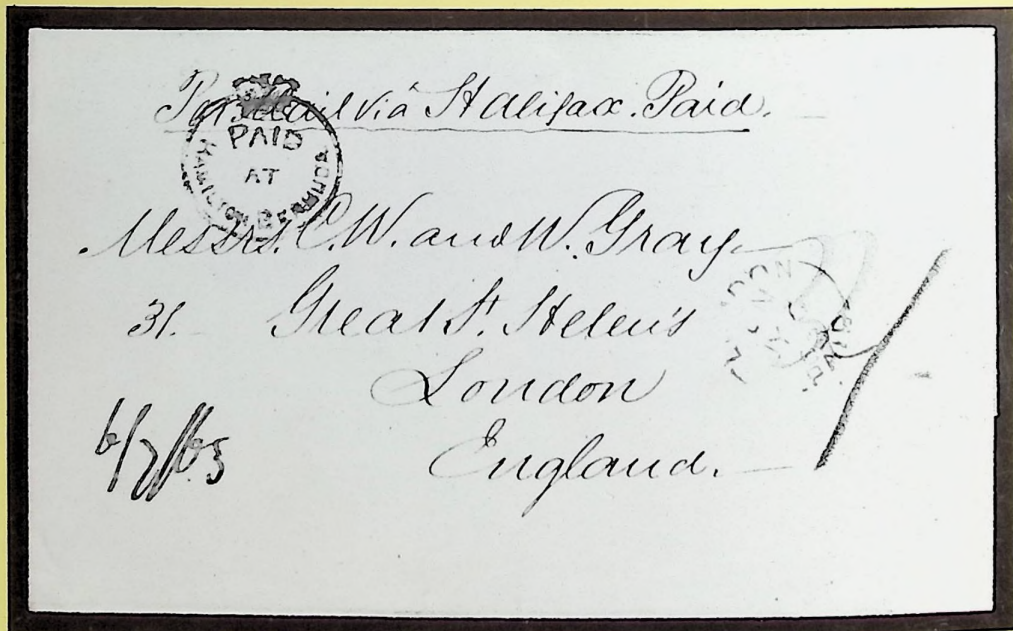 Per Mail viâ Halifax. Paid.
PAID
AT
HAMILTON BERMUDA
Messrs. C. W. and W. Gray
31. Great St. Helen's
London
England.
6/7/65